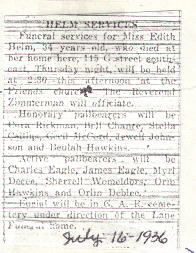 HELM SERVICES
Funeral services for Miss Edith
Helm, 34 years old, who died at
her home here, 115 G street south-
east, Thursday night, will be held
at 2:30 this afternoon at the
Friends church. The Reverend
Zimmerman will officiate.
Honorary pallbearers will be
Rickman, Bell Chance, Stella
Cecil McCord, Jewell John-
son and Beulah Hawkins.
Active pallbearers will be
Charles Eagle, James Eagle, Myrl
Sherrell Womeldorf, Orib
Hawkins and Orlin Deblee.
Burial will be in G. A. R. ceme-
tery under direction of the Lane
Funeral Home.
July 16-1936